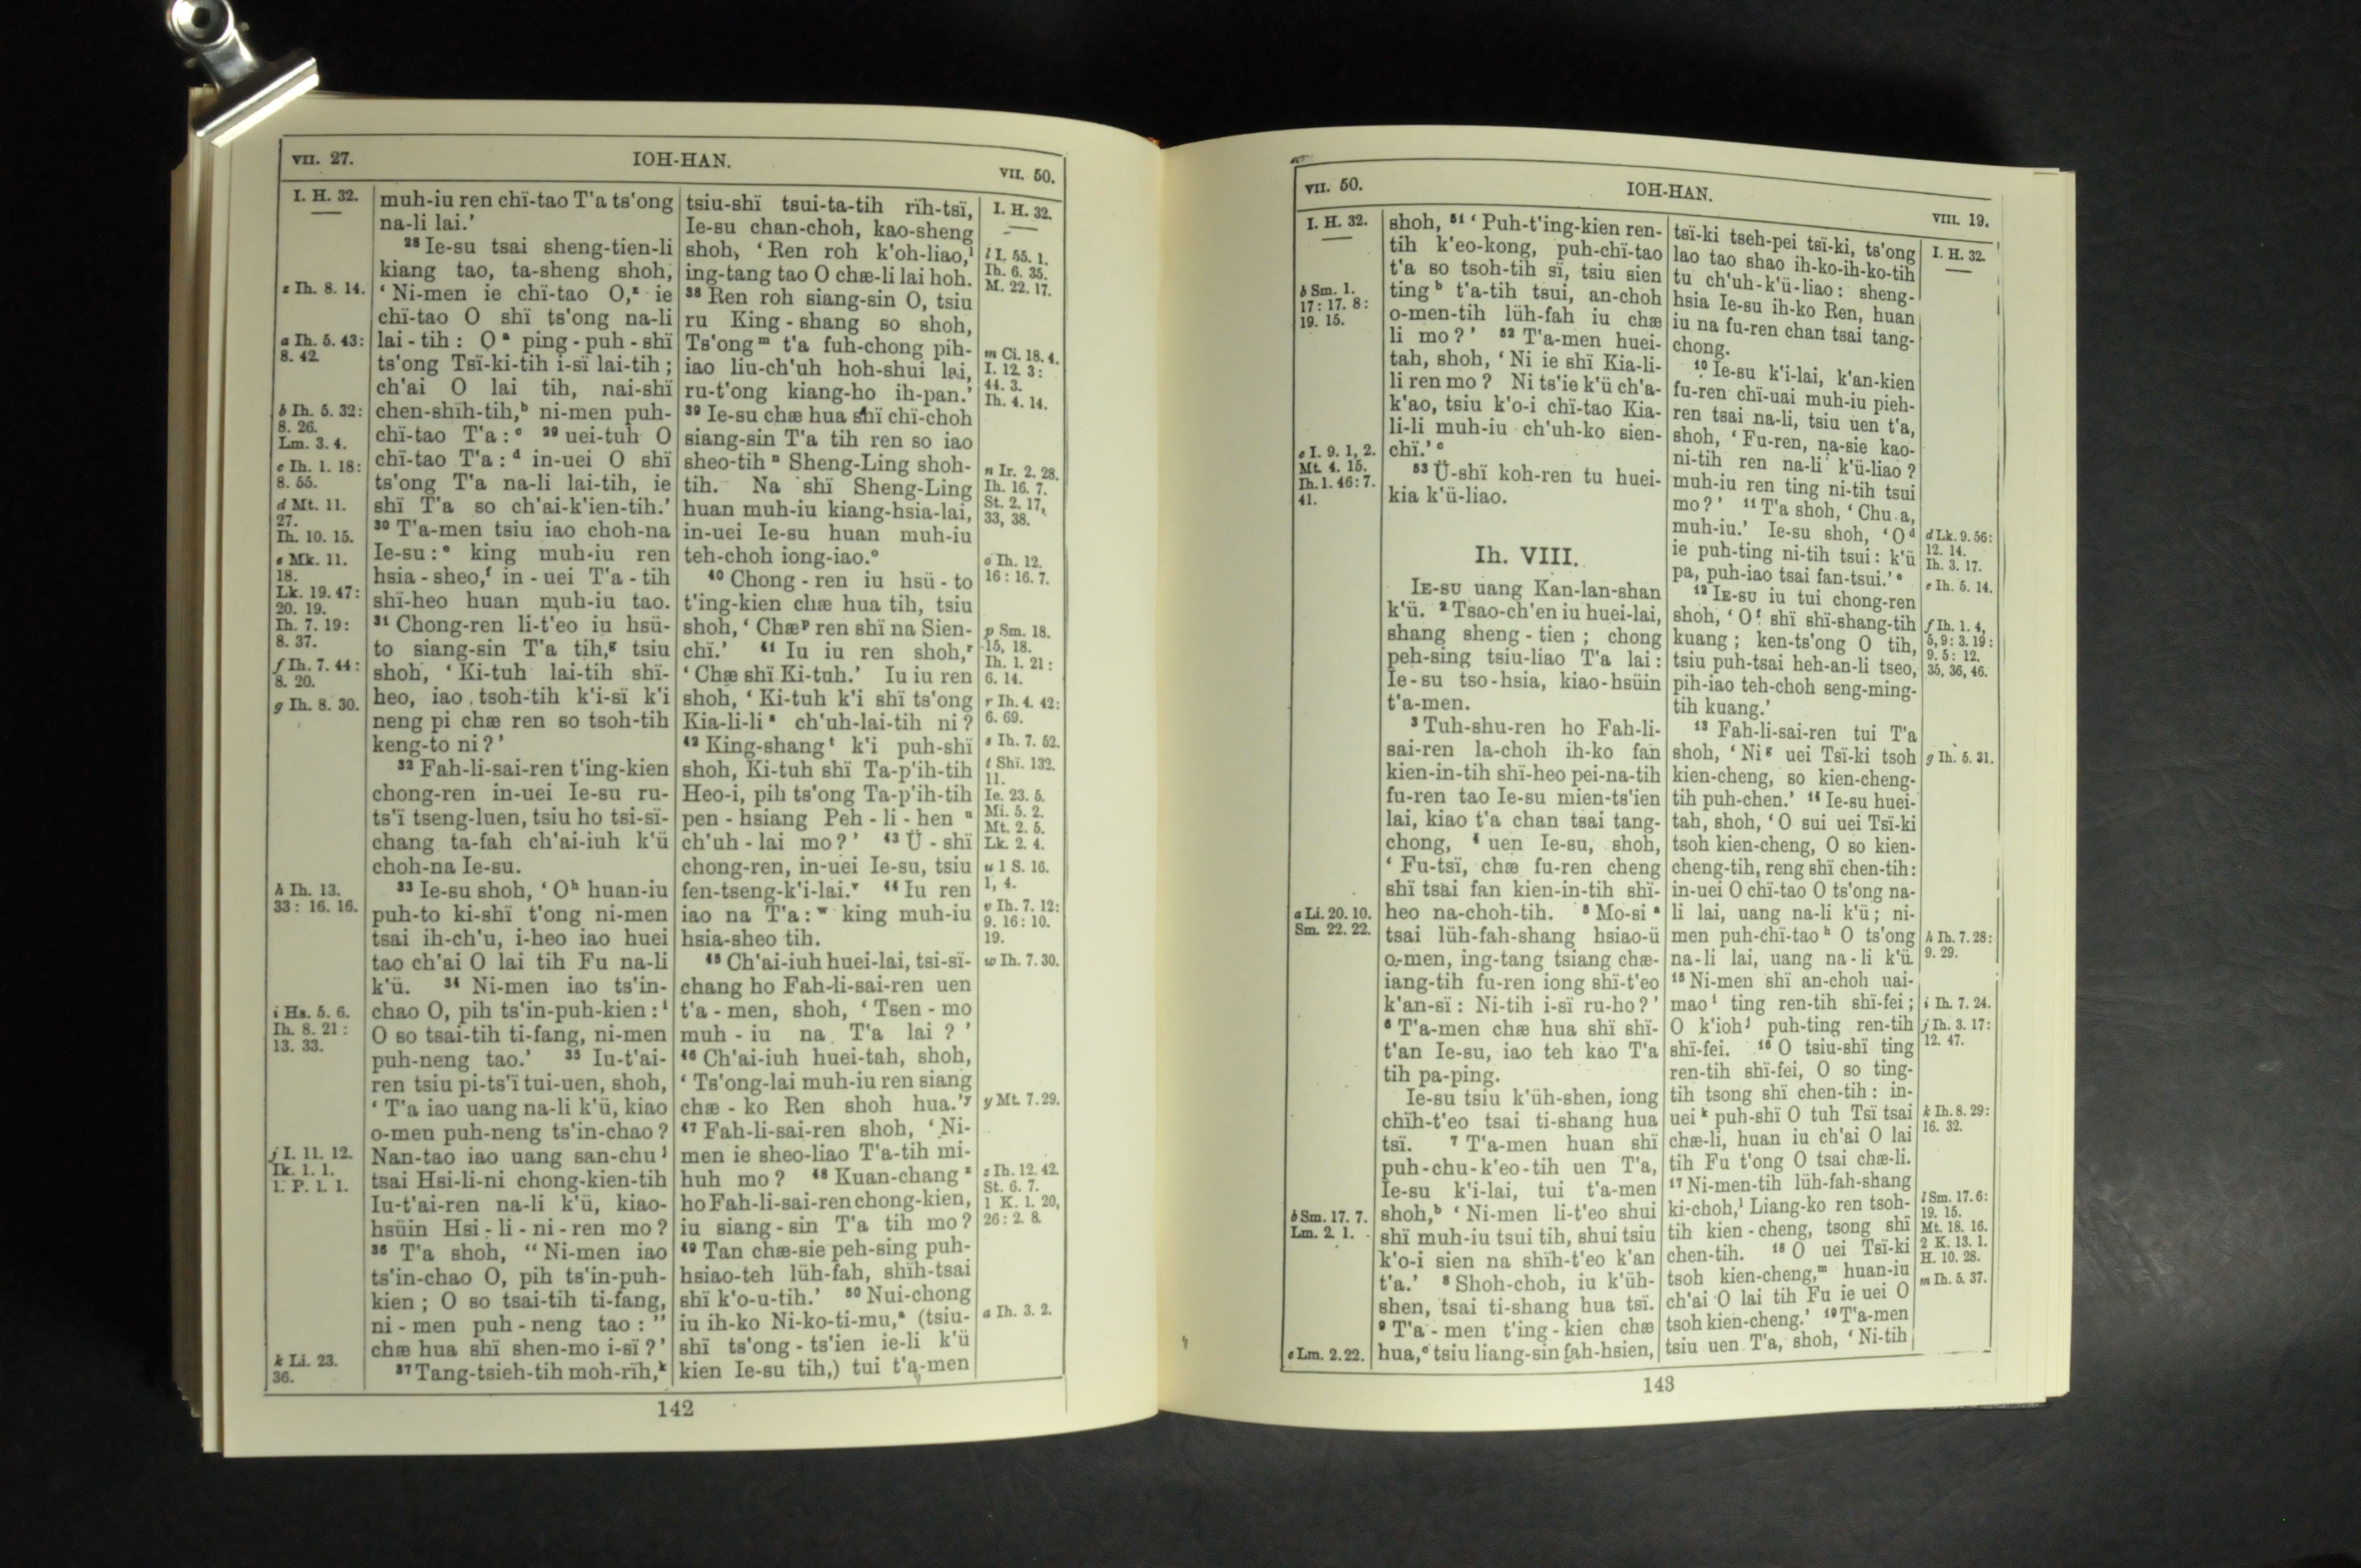 VII. 27.
IOH-HAN.
VII. 50.
I. H. 32.
z Ih. 8. 14.
a Ih. 5. 43:
8. 42.
b Ih. 5. 32:
8. 26.
Lm. 3. 4.
c Ih. 1. 18:
8. 55.
d Mt. 11.
27.
Ih. 10. 15.
e Mk. 11.
18.
Lk. 19. 47:
20. 19.
Ih. 7. 19:
8. 37.
f Ih. 7. 44:
8. 20.
g Ih. 8. 30.
h Ih. 13.
33: 16. 16.
i Hs. 5. 6.
Ih. 8. 21:
13. 33.
j I. 11. 12.
Ik. 1. 1.
1. P. 1. 1.
k Li. 23.
36.
muh-iu ren chï-tao T'a ts'ong
na-li lai.'
28 Ie-su tsai sheng-tien-li
kiang tao, ta-sheng shoh,
'Ni-men ie chï-tao O,z ie
chï-tao O shï ts'ong na-li
lai-tih: Oa ping-puh-shï
ts'ong Tsï-ki-tih i-sï lai-tih;
ch'ai O lai tih, nai-shï
chen-shïh-tih,b ni-men puh-
chï-tao T'a:c 29 uei-tuh O
chï-tao T'a:d in-uei O shï
ts'ong T'a na-li lai-tih, ie
shï T'a so ch'ai-k'ien-tih.'
30 T'a-men tsiu iao choh-na
Ie-su:e king muh-iu ren
hsia-sheo,f in-uei T'a-tih
shï-heo huan muh-iu tao.
31 Chong-ren li-t'eo iu hsü-
to siang-sin T'a tih,g tsiu
shoh, 'Ki-tuh lai-tih shï-
heo, iao tsoh-tih k'i-sï k'i
neng pi chæ ren so tsoh-tih
keng-to ni?'
32 Fah-li-sai-ren t'ing-kien
chong-ren in-uei Ie-su ru-
ts'ï tseng-luen, tsiu ho tsi-sï-
chang ta-fah ch'ai-iuh k'ü
choh-na Ie-su.
33 Ie-su shoh, 'Oh huan-iu
puh-to ki-shï t'ong ni-men
tsai ih-ch'u, i-heo iao huei
tao ch'ai O lai tih Fu na-li
k'ü. 34 Ni-men iao ts'in-
chao O, pih ts'in-puh-kien:i
O so tsai-tih ti-fang, ni-men
puh-neng tao.' 35 Iu-t'ai-
ren tsiu pi-ts'ï tui-uen, shoh,
'T'a iao uang na-li k'ü, kiao
o-men puh-neng ts'in-chao?
Nan-tao iao uang san-chuj
tsai Hsi-li-ni chong-kien-tih
Iu-t'ai-ren na-li k'ü, kiao-
hsüin Hsi-li-ni-ren mo?
36 T'a shoh, "Ni-men iao
ts'in-chao O, pih ts'in-puh-
kien; O so tsai-tih ti-fang,
ni-men puh-neng tao:"
chæ hua shï shen-mo i-sï?'
37 Tang-tsieh-tih moh-rïh,k
tsiu-shï tsui-ta-tih rïh-tsï,
Ie-su chan-choh, kao-sheng
shoh, 'Ren roh k'oh-liao,l
ing-tang tao O chæ-li lai hoh.
38 Ren roh siang-sin O, tsiu
ru King-shang so shoh,
Ts'ongm t'a fuh-chong pih-
iao liu-ch'uh hoh-shui lai,
ru-t'ong kiang-ho ih-pan.'
39 Ie-su chæ hua shï chï-choh
siang-sin T'a tih ren so iao
sheo-tihn Sheng-Ling shoh-
tih. Na shï Sheng-Ling
huan muh-iu kiang-hsia-lai,
in-uei Ie-su huan muh-iu
teh-choh iong-iao.o
40 Chong-ren iu hsü-to
t'ing-kien chæ hua tih, tsiu
shoh, 'Chæp ren shï na Sien-
chï.' 41 Iu iu ren shoh,r
'Chæ shï Ki-tuh.' Iu iu ren
shoh, 'Ki-tuh k'i shï ts'ong
Kia-li-lis ch'uh-lai-tih ni?
42 King-shangt k'i puh-shï
shoh, Ki-tuh shï Ta-p'ih-tih
Heo-i, pih ts'ong Ta-p'ih-tih
pen-hsiang Peh-li-hen u
ch'uh-lai mo?' 43 Ü-shï
chong-ren, in-uei Ie-su, tsiu
fen-tseng-k'i-lai.v 44 Iu ren
iao na T'a:w king muh-iu
hsia-sheo tih.
45 Ch'ai-iuh huei-lai, tsi-sï-
chang ho Fah-li-sai-ren uen
t'a-men, shoh, 'Tsen-mo
muh-iu na T'a lai?'
46 Ch'ai-iuh huei-tah, shoh,
'Ts'ong-lai muh-iu ren siang
chæ-ko Ren shoh hua.'y
47 Fah-li-sai-ren shoh, 'Ni-
men ie sheo-liao T'a-tih mi-
huh mo? 48 Kuan-chang z
ho Fah-li-sai-ren chong-kien,
iu siang-sin T'a tih mo?
49 Tan chæ-sie peh-sing puh-
hsiao-teh lüh-fah, shïh-tsai
shï k'o-u-tih.' 50 Nui-chong
iu ih-ko Ni-ko-ti-mu,a (tsiu-
shï ts'ong-ts'ien ie-li k'ü
kien Ie-su tih,) tui t'a-men
I. H. 32.
l I. 55. 1.
Ih. 6. 35.
M. 22. 17.
m Ci. 18. 4.
I. 12. 3:
44. 3.
Ih. 4. 14.
n Ir. 2. 28.
Ih. 16. 7.
St. 2. 17,
33, 38.
o Ih. 12.
16: 16. 7.
p Sm. 18.
15, 18.
Ih. 1. 21:
6. 14.
r Ih. 4. 42:
6. 69.
s Ih. 7. 52.
t Shï. 132.
11.
Ie. 23. 5.
Mi. 5. 2.
Mt. 2. 5.
Lk. 2. 4.
u 1 S. 16.
1, 4.
v Ih. 7. 12:
9. 16: 10.
19.
w Ih. 7. 30.
y Mt. 7. 29.
z Ih. 12. 42.
St. 6. 7.
1 K. 1. 20,
26: 2. 8.
a Ih. 3. 2.
142
VII. 50.
IOH-HAN.
VIII. 19.
I. H. 32.
b Sm. 1.
17: 17. 8:
19. 15.
c I. 9. 1, 2.
Mt. 4. 15.
Ih. 1. 46: 7.
41.
a Li. 20. 10.
Sm. 22. 22.
b Sm. 17. 7.
Lm. 2. 1.
c Lm. 2. 22.
shoh, 51 'Puh-t'ing-kien ren-
tih k'eo-kong, puh-chï-tao
t'a so tsoh-tih sï, tsiu sien
ting b t'a-tih tsui, an-choh
o-men-tih lüh-fah iu chæ
li mo?' 52 T'a-men huei-
tah, shoh, 'Ni ie shï Kia-li-
li ren mo? Ni ts'ie k'ü ch'a-
k'ao, tsiu k'o-i chï-tao Kia-
li-li muh-iu ch'uh-ko sien-
chï.' c
53 Ü-shï koh-ren tu huei-
kia k'ü-liao.
Ih. VIII.
IE-SU uang Kan-lan-shan
k'ü. 2 Tsao-ch'en iu huei-lai,
shang sheng-tien; chong
peh-sing tsiu-liao T'a lai:
Ie-su tso-hsia, kiao-hsüin
t'a-men.
3 Tuh-shu-ren ho Fah-li-
sai-ren la-choh ih-ko fan
kien-in-tih shï-heo pei-na-tih
fu-ren tao Ie-su mien-ts'ien
lai, kiao t'a chan tsai tang-
chong, 4 uen Ie-su, shoh,
'Fu-tsï, chæ fu-ren cheng
shï tsai fan kien-in-tih shï-
heo na-choh-tih. 5 Mo-si a
tsai lüh-fah-shang hsiao-ü
o-men, ing-tang tsiang chæ-
iang-tih fu-ren iong shï-t'eo
k'an-sï: Ni-tih i-sï ru-ho?'
6 T'a-men chæ hua shï shï-
t'an Ie-su, iao teh kao T'a
tih pa-ping.
Ie-su tsiu k'üh-shen, iong
chïh-t'eo tsai ti-shang hua
tsï. 7 T'a-men huan shï
puh-chu-k'eo-tih uen T'a,
Ie-su k'i-lai, tui t'a-men
shoh,b 'Ni-men li-t'eo shui
shï muh-iu tsui tih, shui tsiu
k'o-i sien na shïh-t'eo k'an
t'a.' 8 Shoh-choh, iu k'üh-
shen, tsai ti-shang hua tsï.
9 T'a-men t'ing-kien chæ
hua,c tsiu liang-sin fah-hsien,
tsï-ki tseh-pei tsï-ki, ts'ong
lao tao shao ih-ko-ih-ko-tih
tu ch'uh-k'ü-liao: sheng-
hsia Ie-su ih-ko Ren, huan
iu na fu-ren chan tsai tang-
chong.
10 Ie-su k'i-lai, k'an-kien
fu-ren chï-uai muh-iu pieh-
ren tsai na-li, tsiu uen t'a,
shoh, 'Fu-ren, na-sie kao-
ni-tih ren na-li k'ü-liao?
muh-iu ren ting ni-tih tsui
mo?' 11 T'a shoh, 'Chu a,
muh-iu.' Ie-su shoh, 'Od
ie puh-ting ni-tih tsui: k'ü
pa, puh-iao tsai fan-tsui.' e
12 IE-SU iu tui chong-ren
shoh, 'Of shï shï-shang-tih
kuang; ken-ts'ong O tih,
tsiu puh-tsai heh-an-li tseo,
pih-iao teh-choh seng-ming-
tih kuang.'
13 Fah-li-sai-ren tui T'a
shoh, 'Nig uei Tsï-ki tsoh
kien-cheng, so kien-cheng-
tih puh-chen.' 14 Ie-su huei-
tah, shoh, 'O sui uei Tsï-ki
tsoh kien-cheng, O so kien-
cheng-tih, reng shï chen-tih:
in-uei O chï-tao O ts'ong na-
li lai, uang na-li k'ü; ni-
men puh-chï-tao h O ts'ong
na-li lai, uang na-li k'ü.
15 Ni-men shï an-choh uai-
mao i ting ren-tih shï-fei;
O k'ioh j puh-ting ren-tih
shï-fei. 16 O tsiu-shï ting
ren-tih shï-fei, O so ting-
tih tsong shï chen-tih: in-
uei k puh-shï O tuh Tsï tsai
chæ-li, huan iu ch'ai O lai
tih Fu t'ong O tsai chæ-li.
17 Ni-men-tih lüh-fah-shang
ki-choh,l Liang-ko ren tsoh-
tih kien-cheng, tsong shï
chen-tih. 18 O uei Tsï-ki
tsoh kien-cheng,m huan-iu
ch'ai O lai tih Fu ie uei O
tsoh kien-cheng.' 19 T'a-men
tsiu uen T'a, shoh, 'Ni-tih
I. H. 32.
d Lk. 9. 56:
12. 14.
Ih. 3. 17.
e Ih. 5. 14.
f Ih. 1. 4,
5, 9: 3. 19:
9. 5: 12.
35, 36, 46.
g Ih. 5. 31.
h Ih. 7. 28:
9. 29.
i Ih. 7. 24.
j Ih. 3. 17:
12. 47.
k Ih. 8. 29:
16. 32.
l Sm. 17. 6:
19. 15.
Mt. 18. 16.
2 K. 13. 1.
H. 10. 28.
m Ih. 5. 37.
143